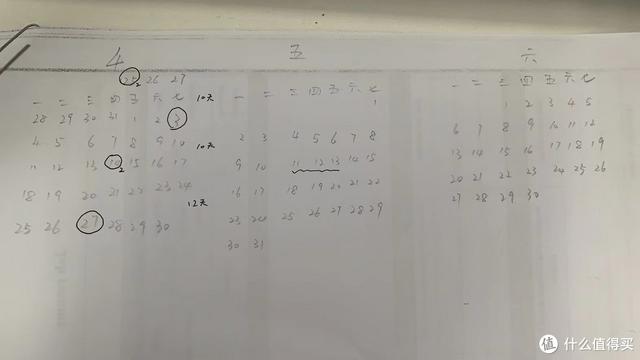 4
25 26 27
一 二 三 四 五 六 七 10天
28 29 30 31 1 2 3
4 5 6 7 8 9 10 10天
11 12 13 14 15 16 17
18 19 20 21 22 23 24 12天
25 26 27 28 29 30
五
一 二 三 四 五 六 七
1
2 3 4 5 6 7 8
9 10 11 12 13 14 15
16 17 18 19 20 21 22
23 24 25 26 27 28 29
30 31
六
一 二 三 四 五 六 七
1 2 3 4 5
6 7 8 9 10 11 12
13 14 15 16 17 18 19
20 21 22 23 24 25 26
27 28 29 30
值 什么值得买